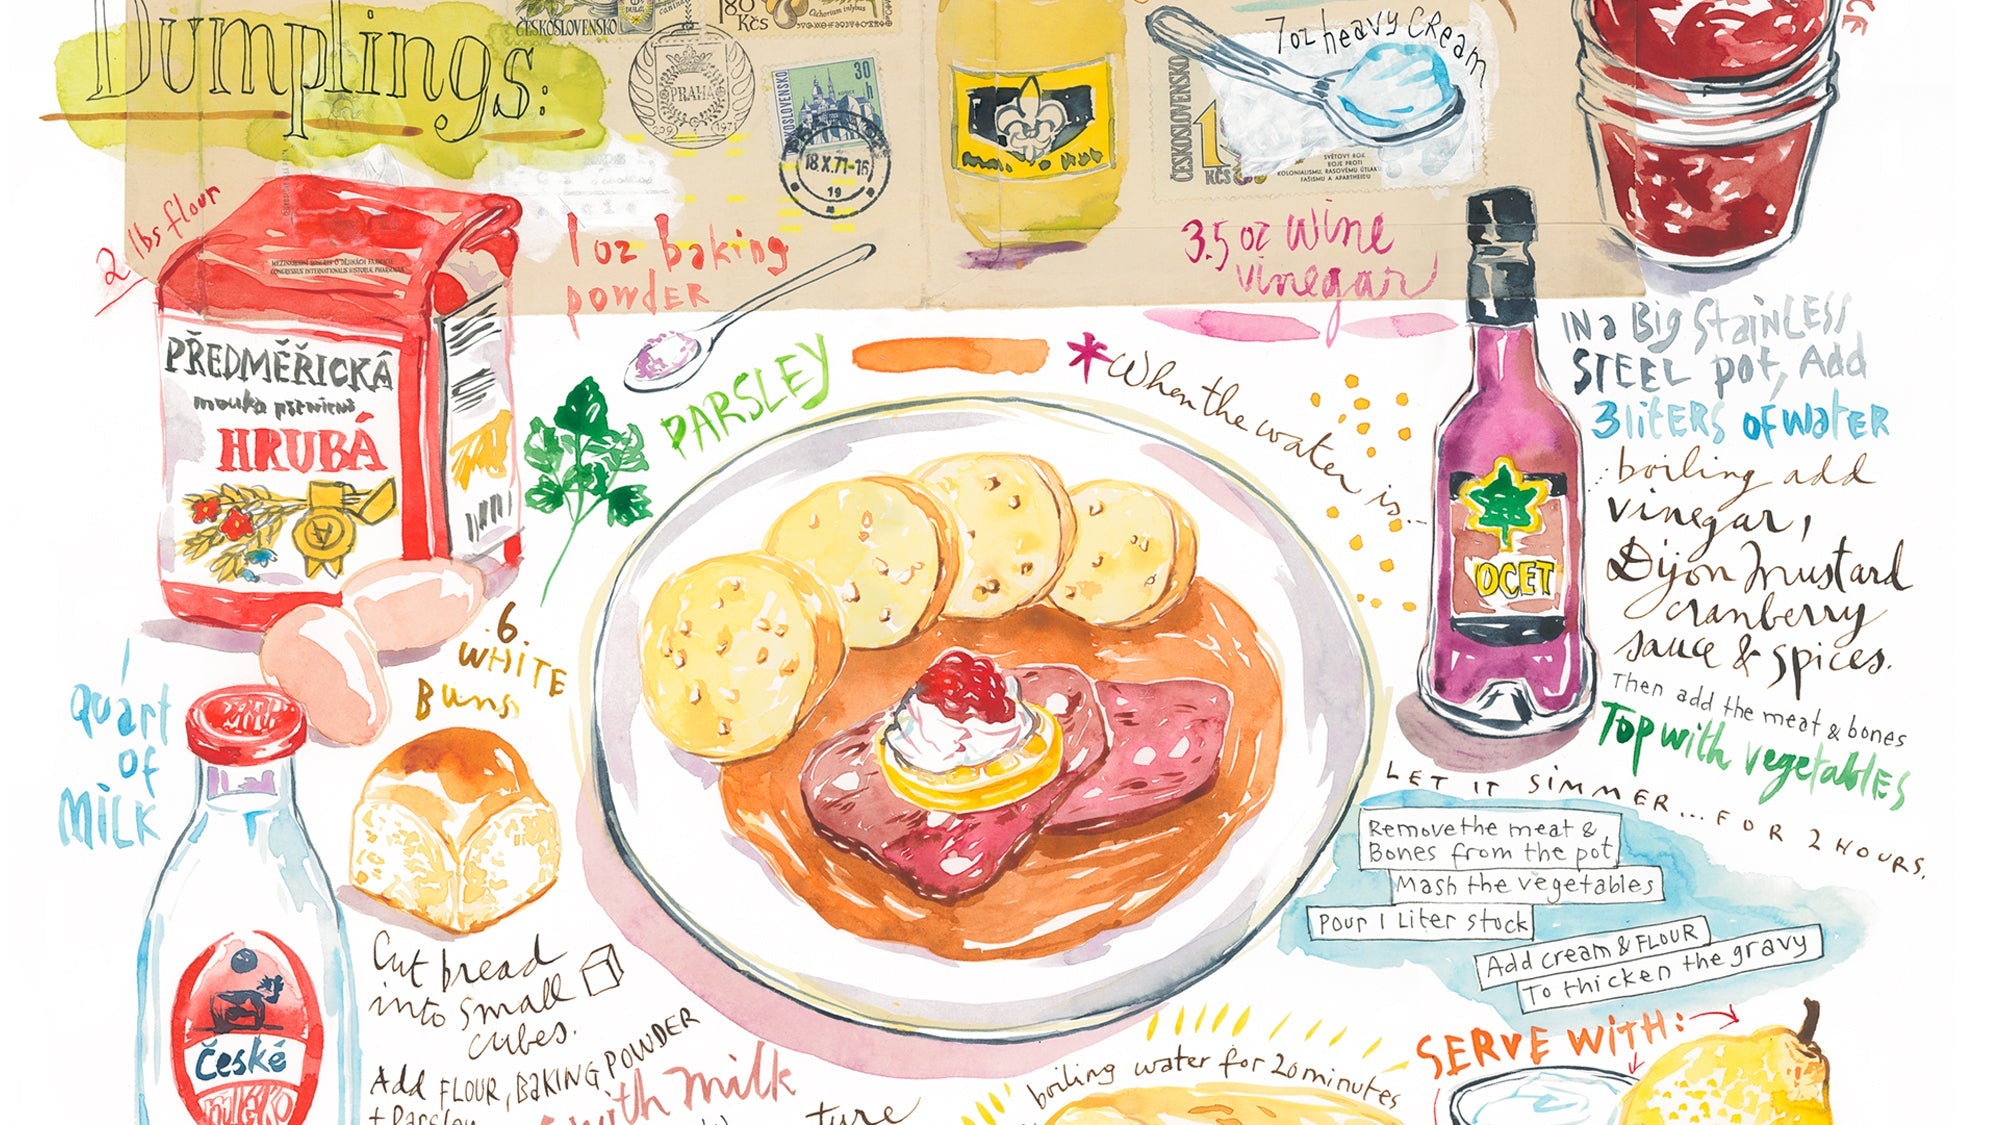 Dumplings:
ČESKOSLOVENSKO
1,80
Kčs
Cichorium intybus
PRAHA
1971
ČESKOSLOVENSKO
30
h
18.X.71-16
19
7oz heavy CREam
ČESKOSLOVENSKO
1
KČS
SVĚTOVÝ ROK
BOJE PROTI
KOLONIALISMU, RASOVÉMU ÚTLAKU
FAŠISMU A APARTHEIDU
2 lbs flour
MEZINÁRODNÍ KONGRES O DĚJINÁCH FARMACIE
CONGRESSUS INTERNATIONALIS HISTORIAE PHARMACIAE
1 oz baking
powDER
3.5 oz Wine
vinegar
PŘEDMĚŘICKÁ
HRUBÁ
PARSLEY
*When the water is...
IN a Big StaiNLESS
STEEL pot, Add
3 liTERS of waTER
boiling add
vinegar,
Dijon mustard
cranberry
sauce & spices.
Then add the meat & bones
Top with vegetablES
LET IT SIMMER...FOR 2 HOURS.
OCET
6
WHITE
Buns
1
quart
of
MiLK
České
mléko
Cut bread
into small
cubes.
Add FLOUR, BAKING POWDER
+ Parsley
with milk
ture
Remove the meat &
Bones from the pot
Mash the vegetables
Pour 1 Liter stock
Add cream & FLOUR
To thicken the gravy
SERVE WiTH:
boiling water for 20 minutes